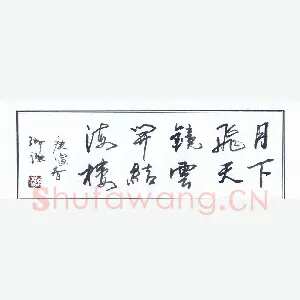 月下
飛天
鏡雲
開結
海樓
庚寅春
Shufawang.CN